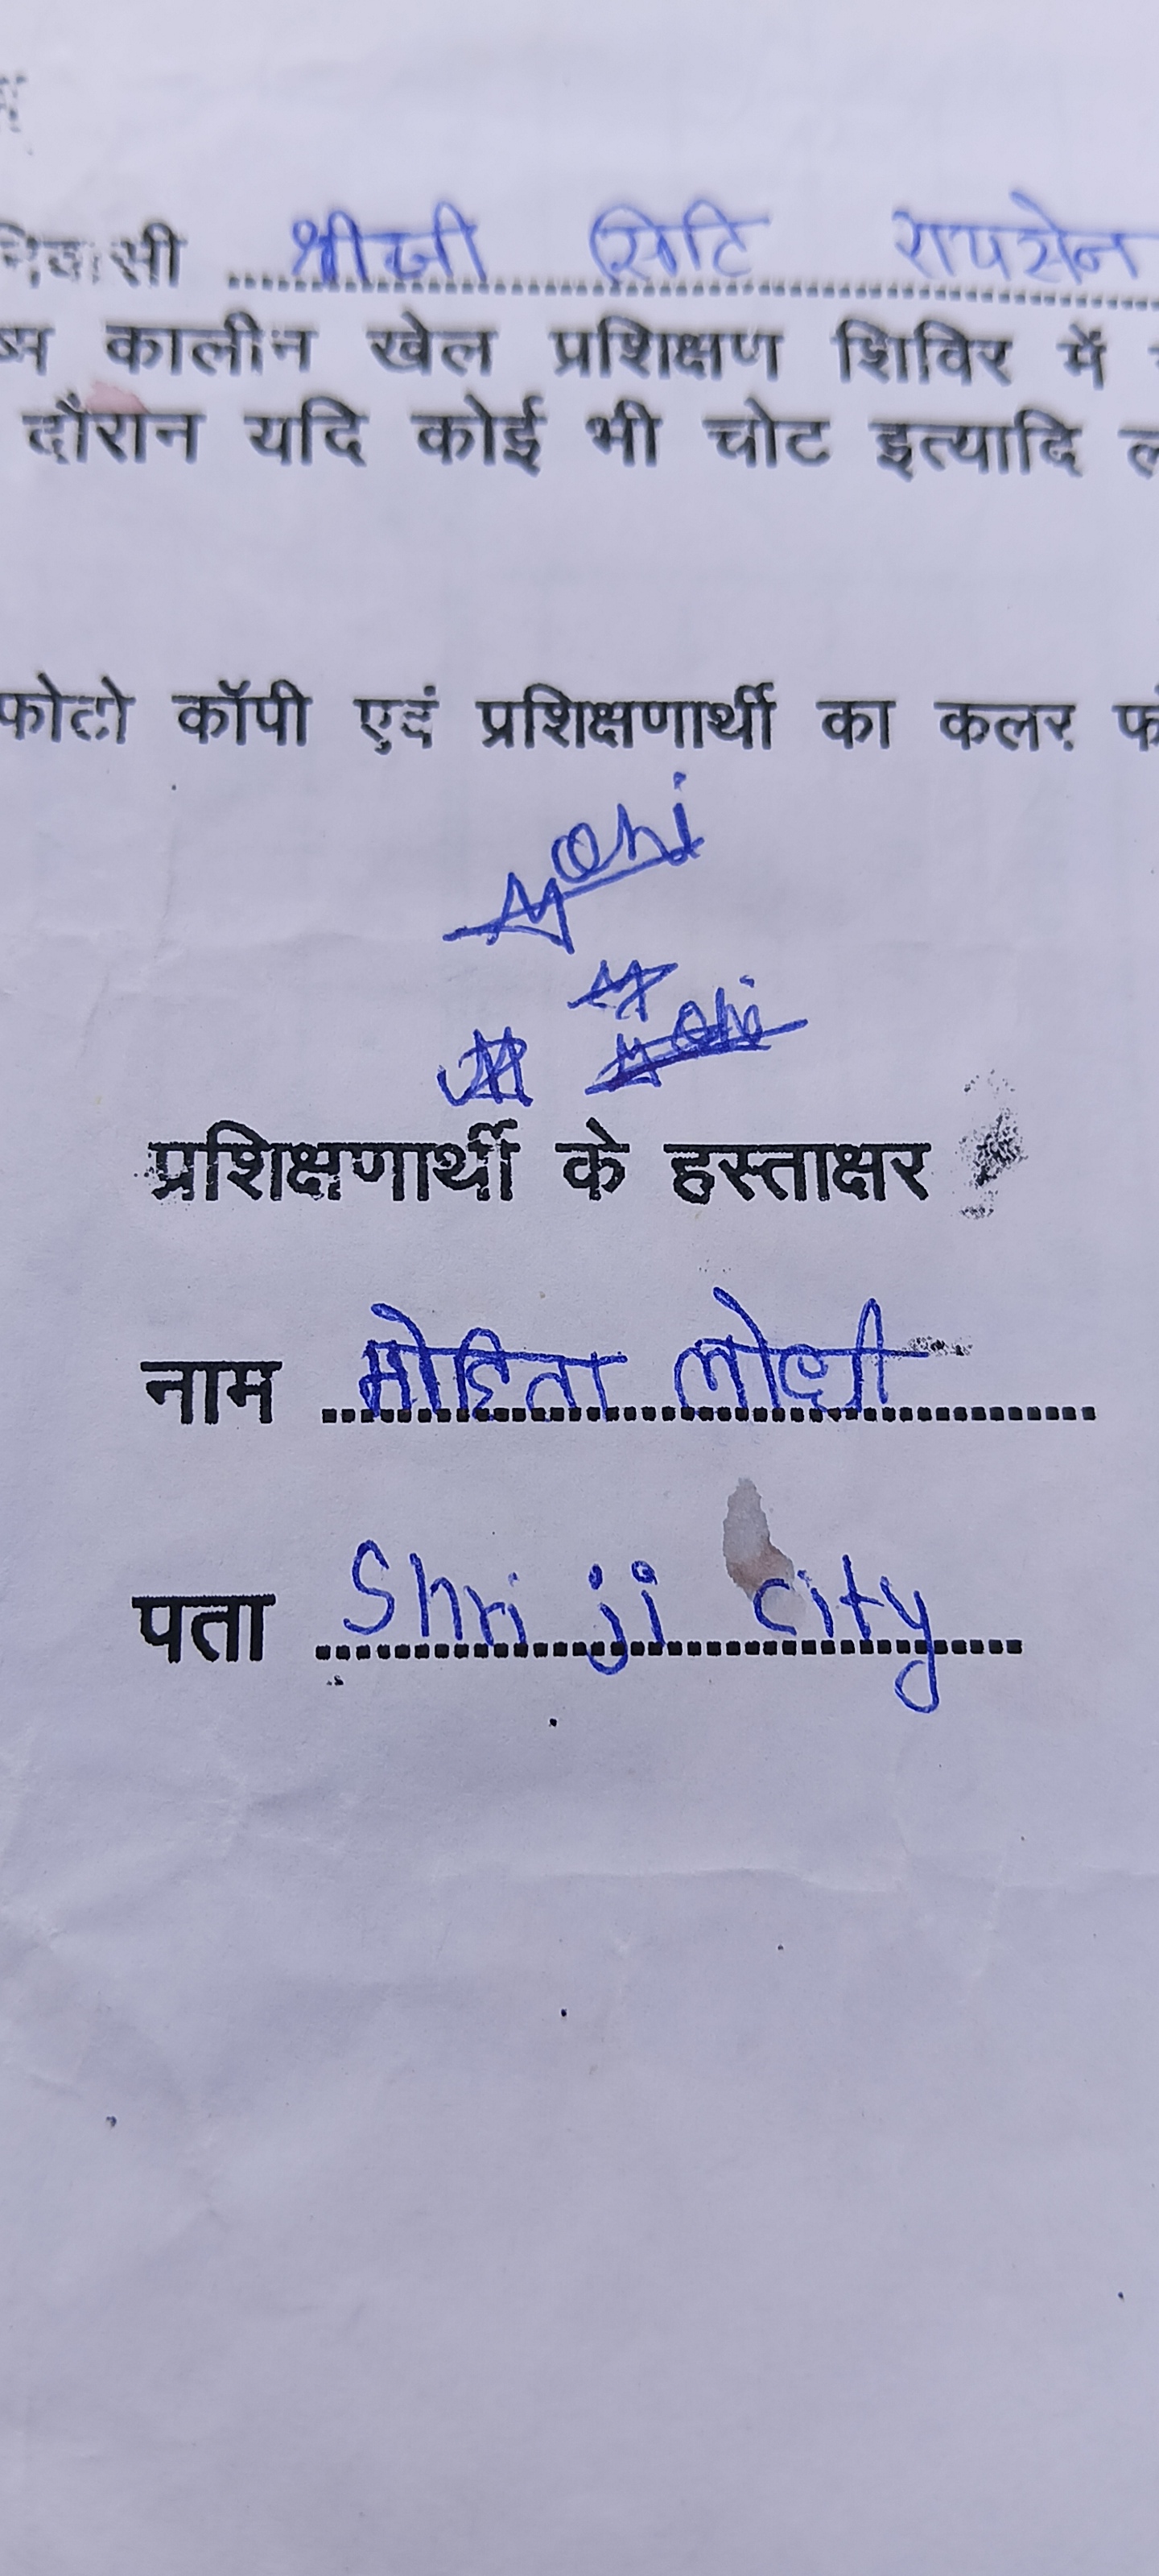 निवासी श्रीजी सिटि रायसेन
कालीन खेल प्रशिक्षण शिविर में
दौरान यदि कोई भी चोट इत्यादि
फोटो कॉपी एवं प्रशिक्षणार्थी का कलर
Mohi
प्रशिक्षणार्थी के हस्ताक्षर
नाम मोहिता लोधी
पता Shri ji city